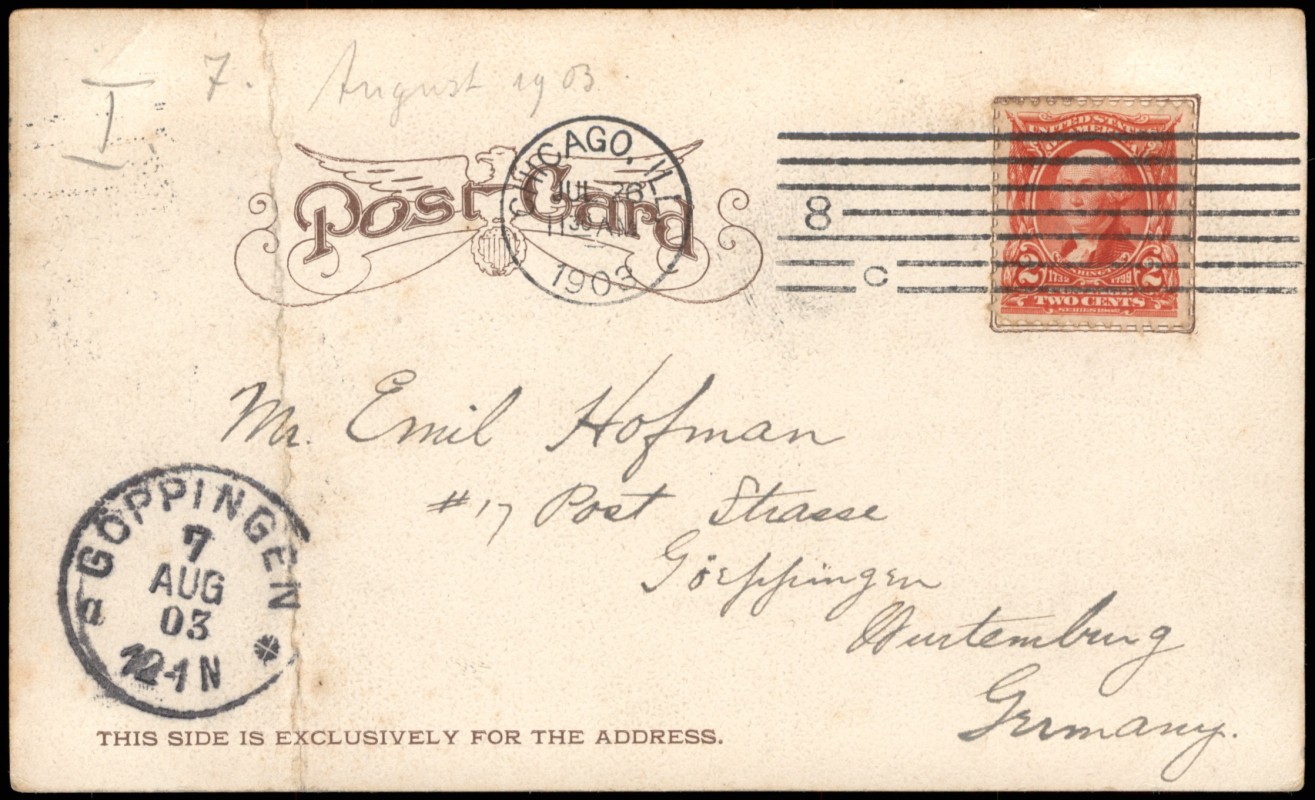 I. 7. August 1903.
Post Card
CHICAGO, ILL.
JUL 26
11 30 AM
1903
8
C
UNITED STATES
OF AMERICA
WASHINGTON
1732 1799
2 2
TWO CENTS
SERIES 1902
Mr. Emil Hofman
#17 Post Strasse
Göeppingen
Wurtemburg
Germany.
GÖPPINGEN
7
AUG
03
12-1 N
THIS SIDE IS EXCLUSIVELY FOR THE ADDRESS.